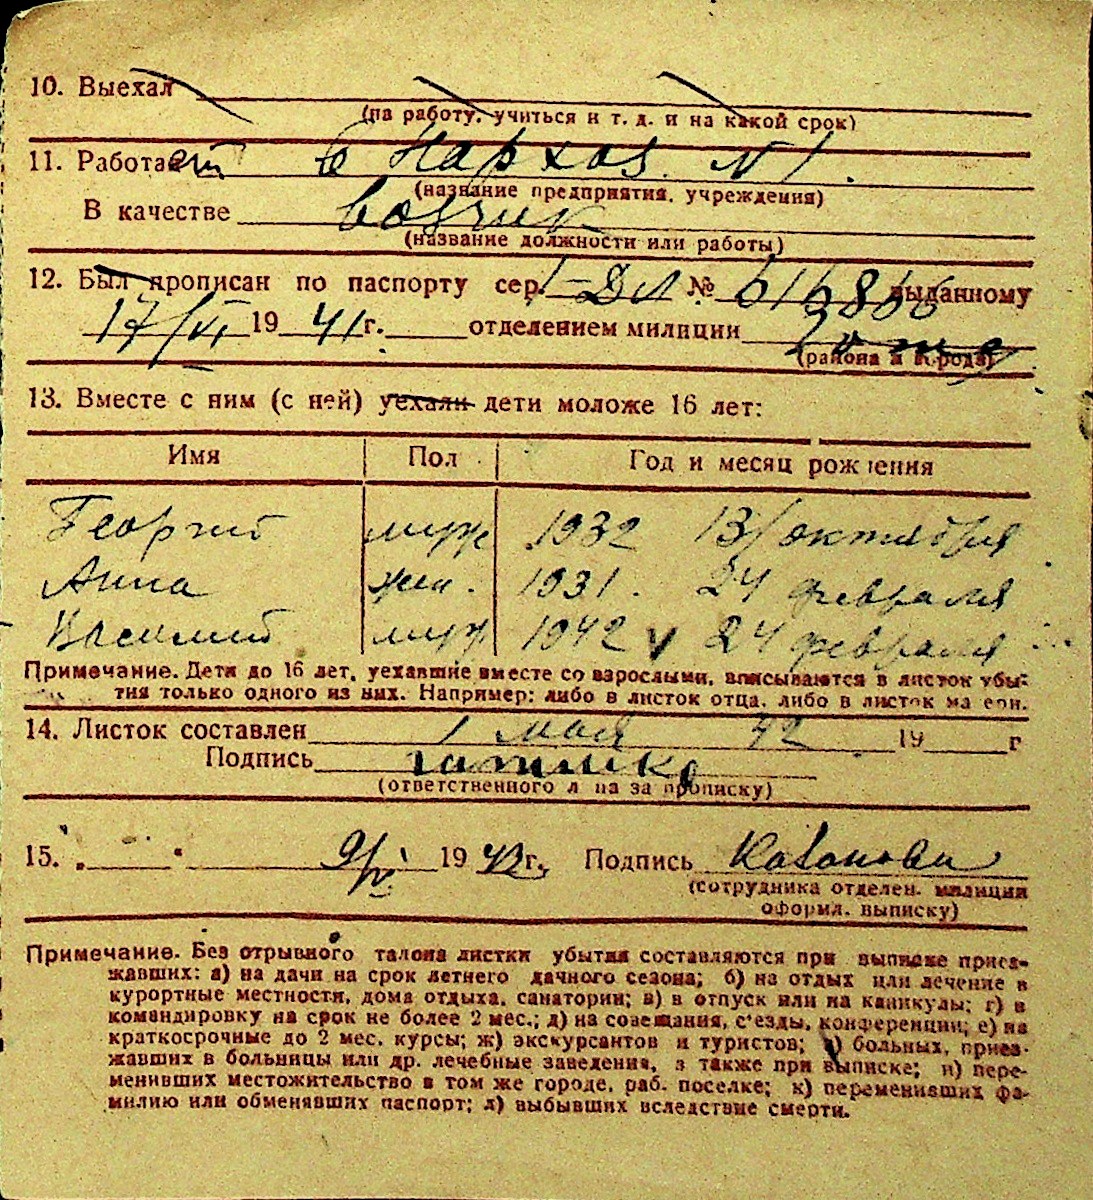 10. Выехал
(на работу, учиться и т. д. и на какой срок)
11. Работает в Нархоз. N 1.
(название предприятия, учреждения)
В качестве возчик
(название должности или работы)
12. Был прописан по паспорту сер. I-ДЛ № 616806 выданному
17/VI 1941г. отделением милиции
(района и города)
13. Вместе с ним (с ней) уехали дети моложе 16 лет:
Имя Пол Год и месяц рождения
Георгий муж 1932 13/октября
Анна жен. 1931. 24 февраля
Василий муж 1942 v 24 февраля
Примечание. Дети до 16 лет, уехавшие вместе со взрослыми, вписываются в листок убы-
тия только одного из них. Например: либо в листок отца, либо в листок матери.
14. Листок составлен 1 мая 42 19 г
Подпись
(ответственного лица за прописку)
15. 9/VI 1942г. Подпись
(сотрудника отделен. милиции
оформл. выписку)
Примечание. Без отрывного талона листки убытия составляются при выписке приез-
жавших: а) на дачи на срок летнего дачного сезона; б) на отдых или лечение в
курортные местности, дома отдыха, санатории; в) в отпуск или на каникулы; г) в
командировку на срок не более 2 мес.; д) на совещания, с'езды, конференции; е) на
краткосрочные до 2 мес. курсы; ж) экскурсантов и туристов; з) больных, приез-
жавших в больницы или др. лечебные заведения, а также при выписке; и) пере-
менивших местожительство в том же городе, раб. поселке; к) переменивших фа-
милию или обменявших паспорт; л) выбывших вследствие смерти.